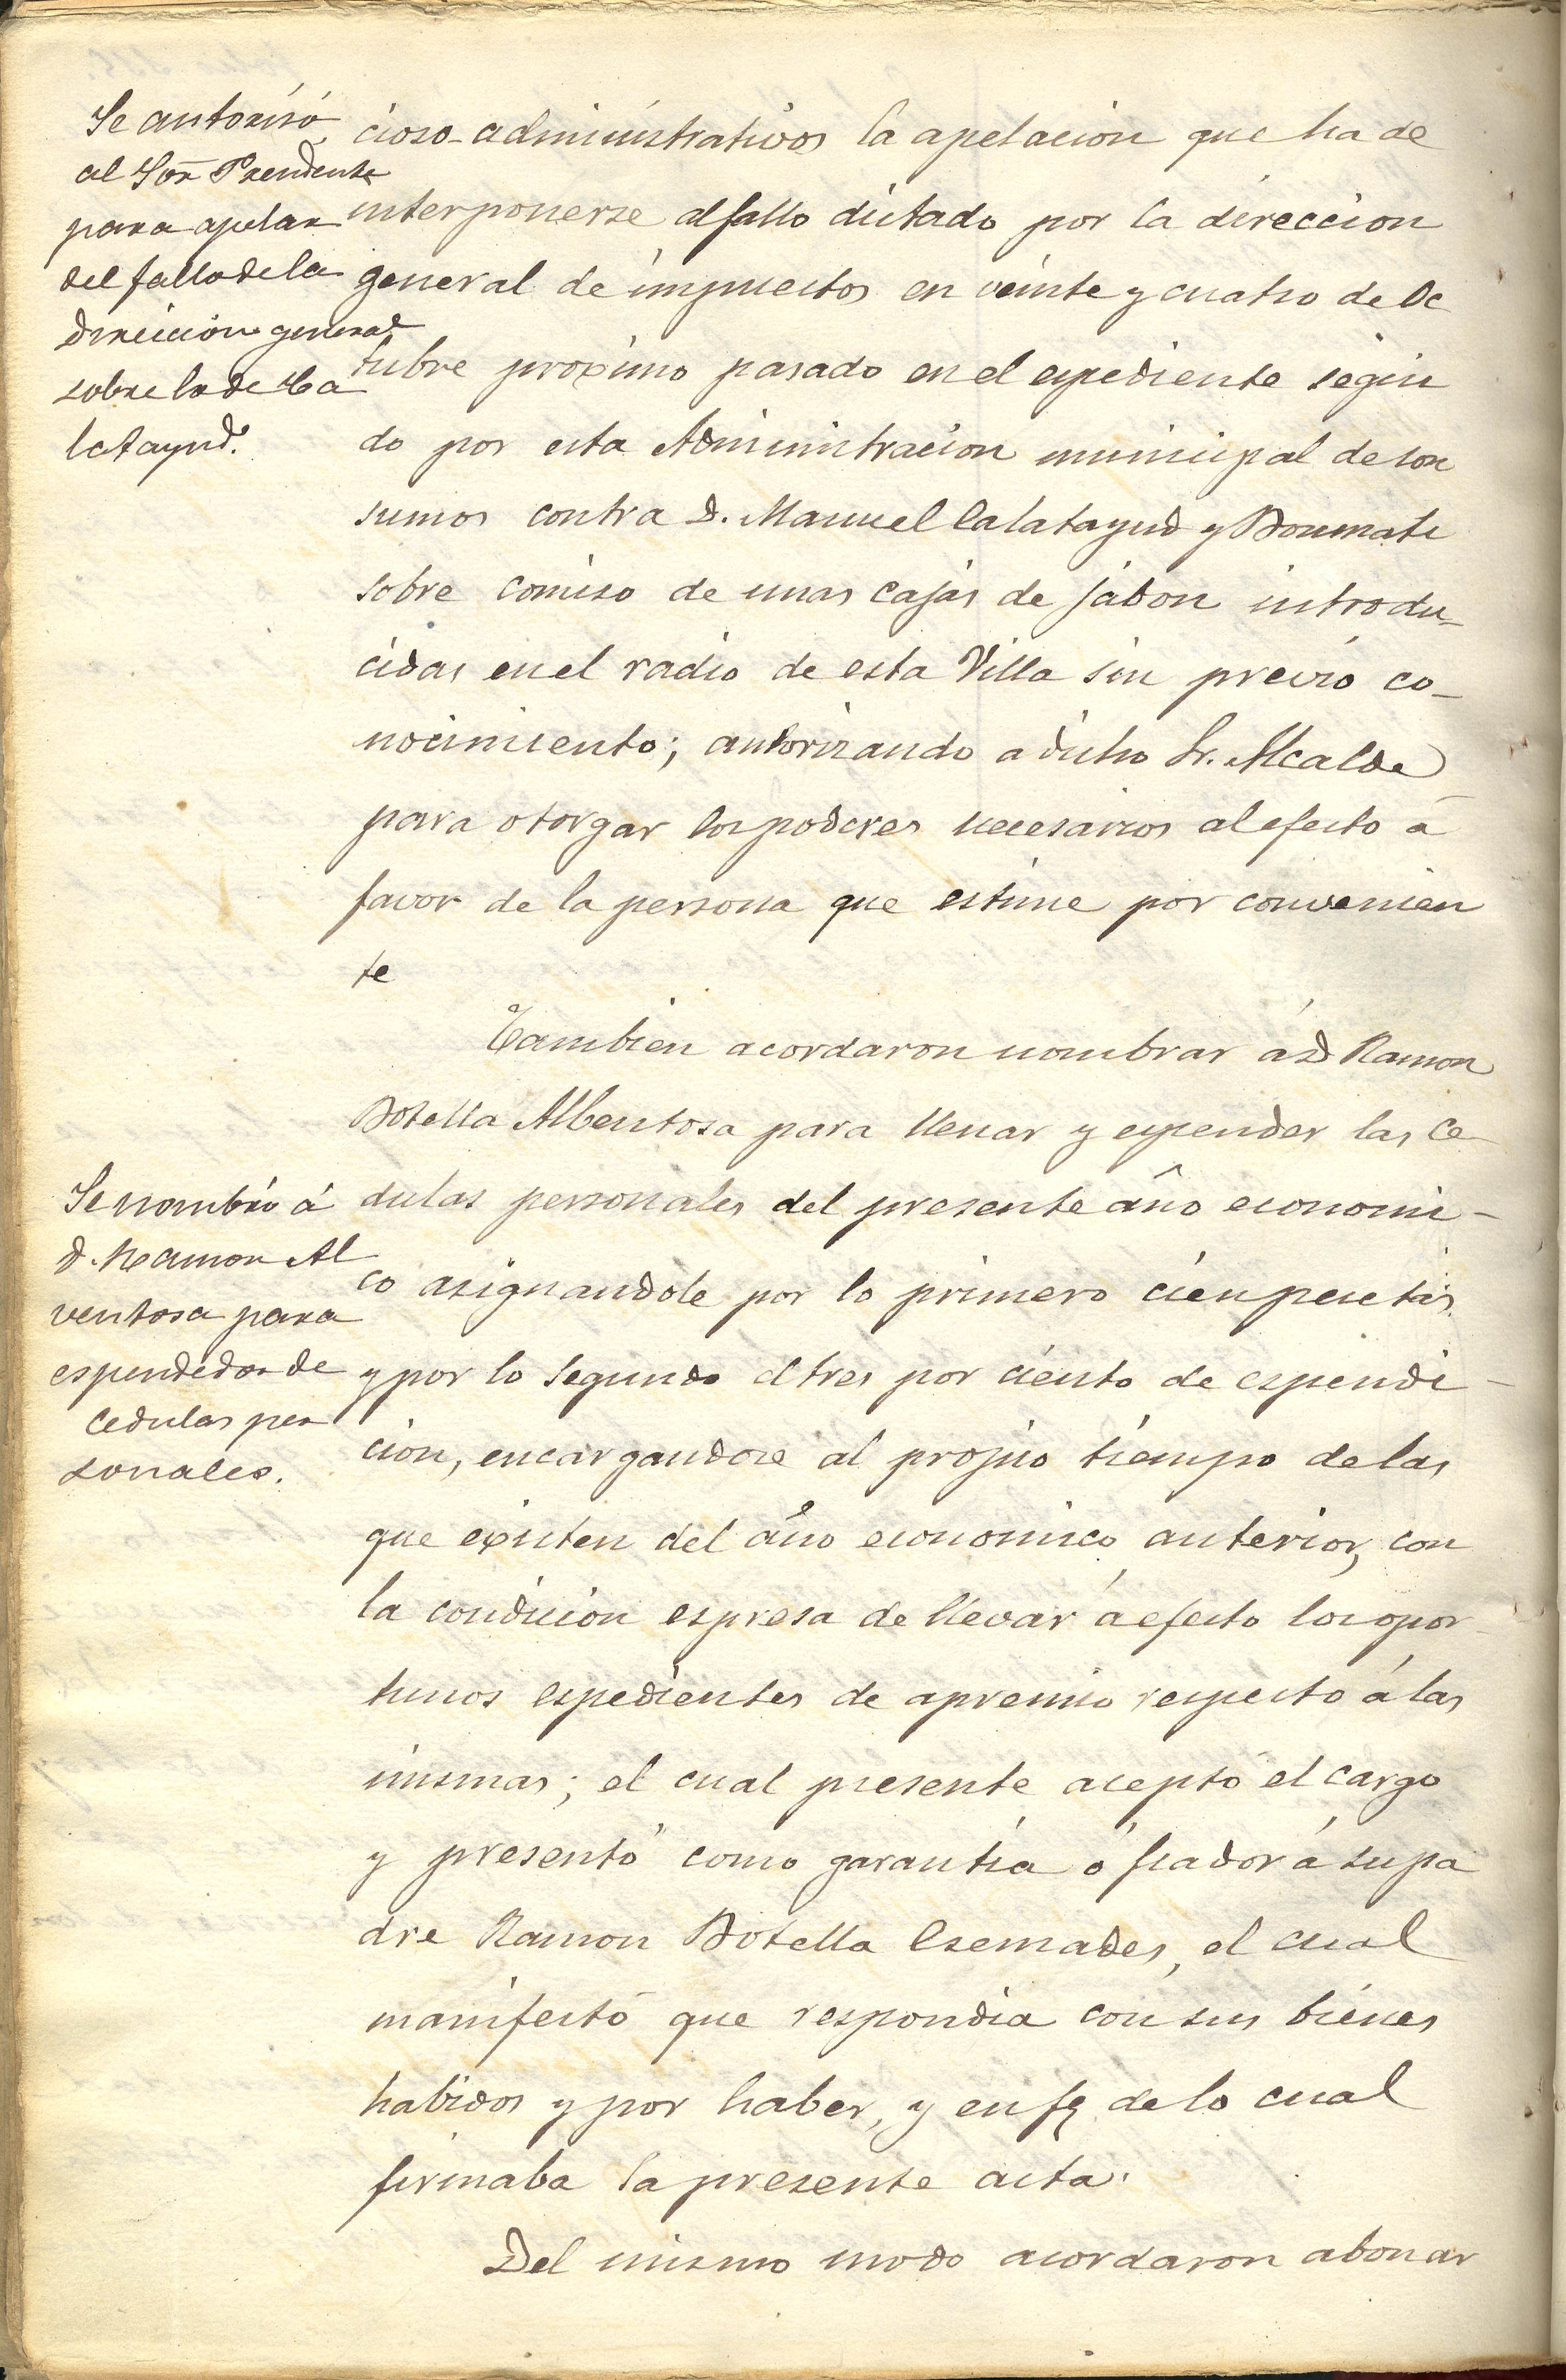 Se autorisó
al Sor Presidente
para apelar
del fallo de la
direccion general
sobre lo de Ca
latayud.
cioso-administrativos la apelacion que ha de
interponerse al fallo dictado por la direccion
general de impuestos en veinte y cuatro de Oc
tubre proximo pasado en el espediente segui
do por esta Administracion municipal de con
sumos contra D. Manuel Calatayud y Bonmati
sobre comiso de unas cajas de jabon introdu-
cidas en el radio de esta Villa sin previo co-
nocimiento; autorizando a dicho Sr. Alcalde
para otorgar los poderes necesarios al efecto á
favor de la persona que estime por convenien
te
Tambien acordaron nombrar á D Ramon
Botella Albentosa para llenar y espender las ce
Se nombró á
D. Ramon Al
ventosa para
espendedor de
cedulas per
sonales.
dulas personales del presente año economi-
co asignandole por lo primero cien pesetas
y por lo segundo el tres por ciento de espendi-
cion, encargandose al propio tiempo de las
que existen del año economico anterior, con
la condicion espresa de llevar á efecto los opor
tunos espedientes de apremio respecto á las
mismas; el cual presente aceptó el cargo
y presentó como garantia ó fiador á su pa
dre Ramon Botella el cual
manifestó que respondia con sus bienes
habidos y por haber, y en fe de lo cual
firmaba la presente acta.
Del mismo modo acordaron abonar